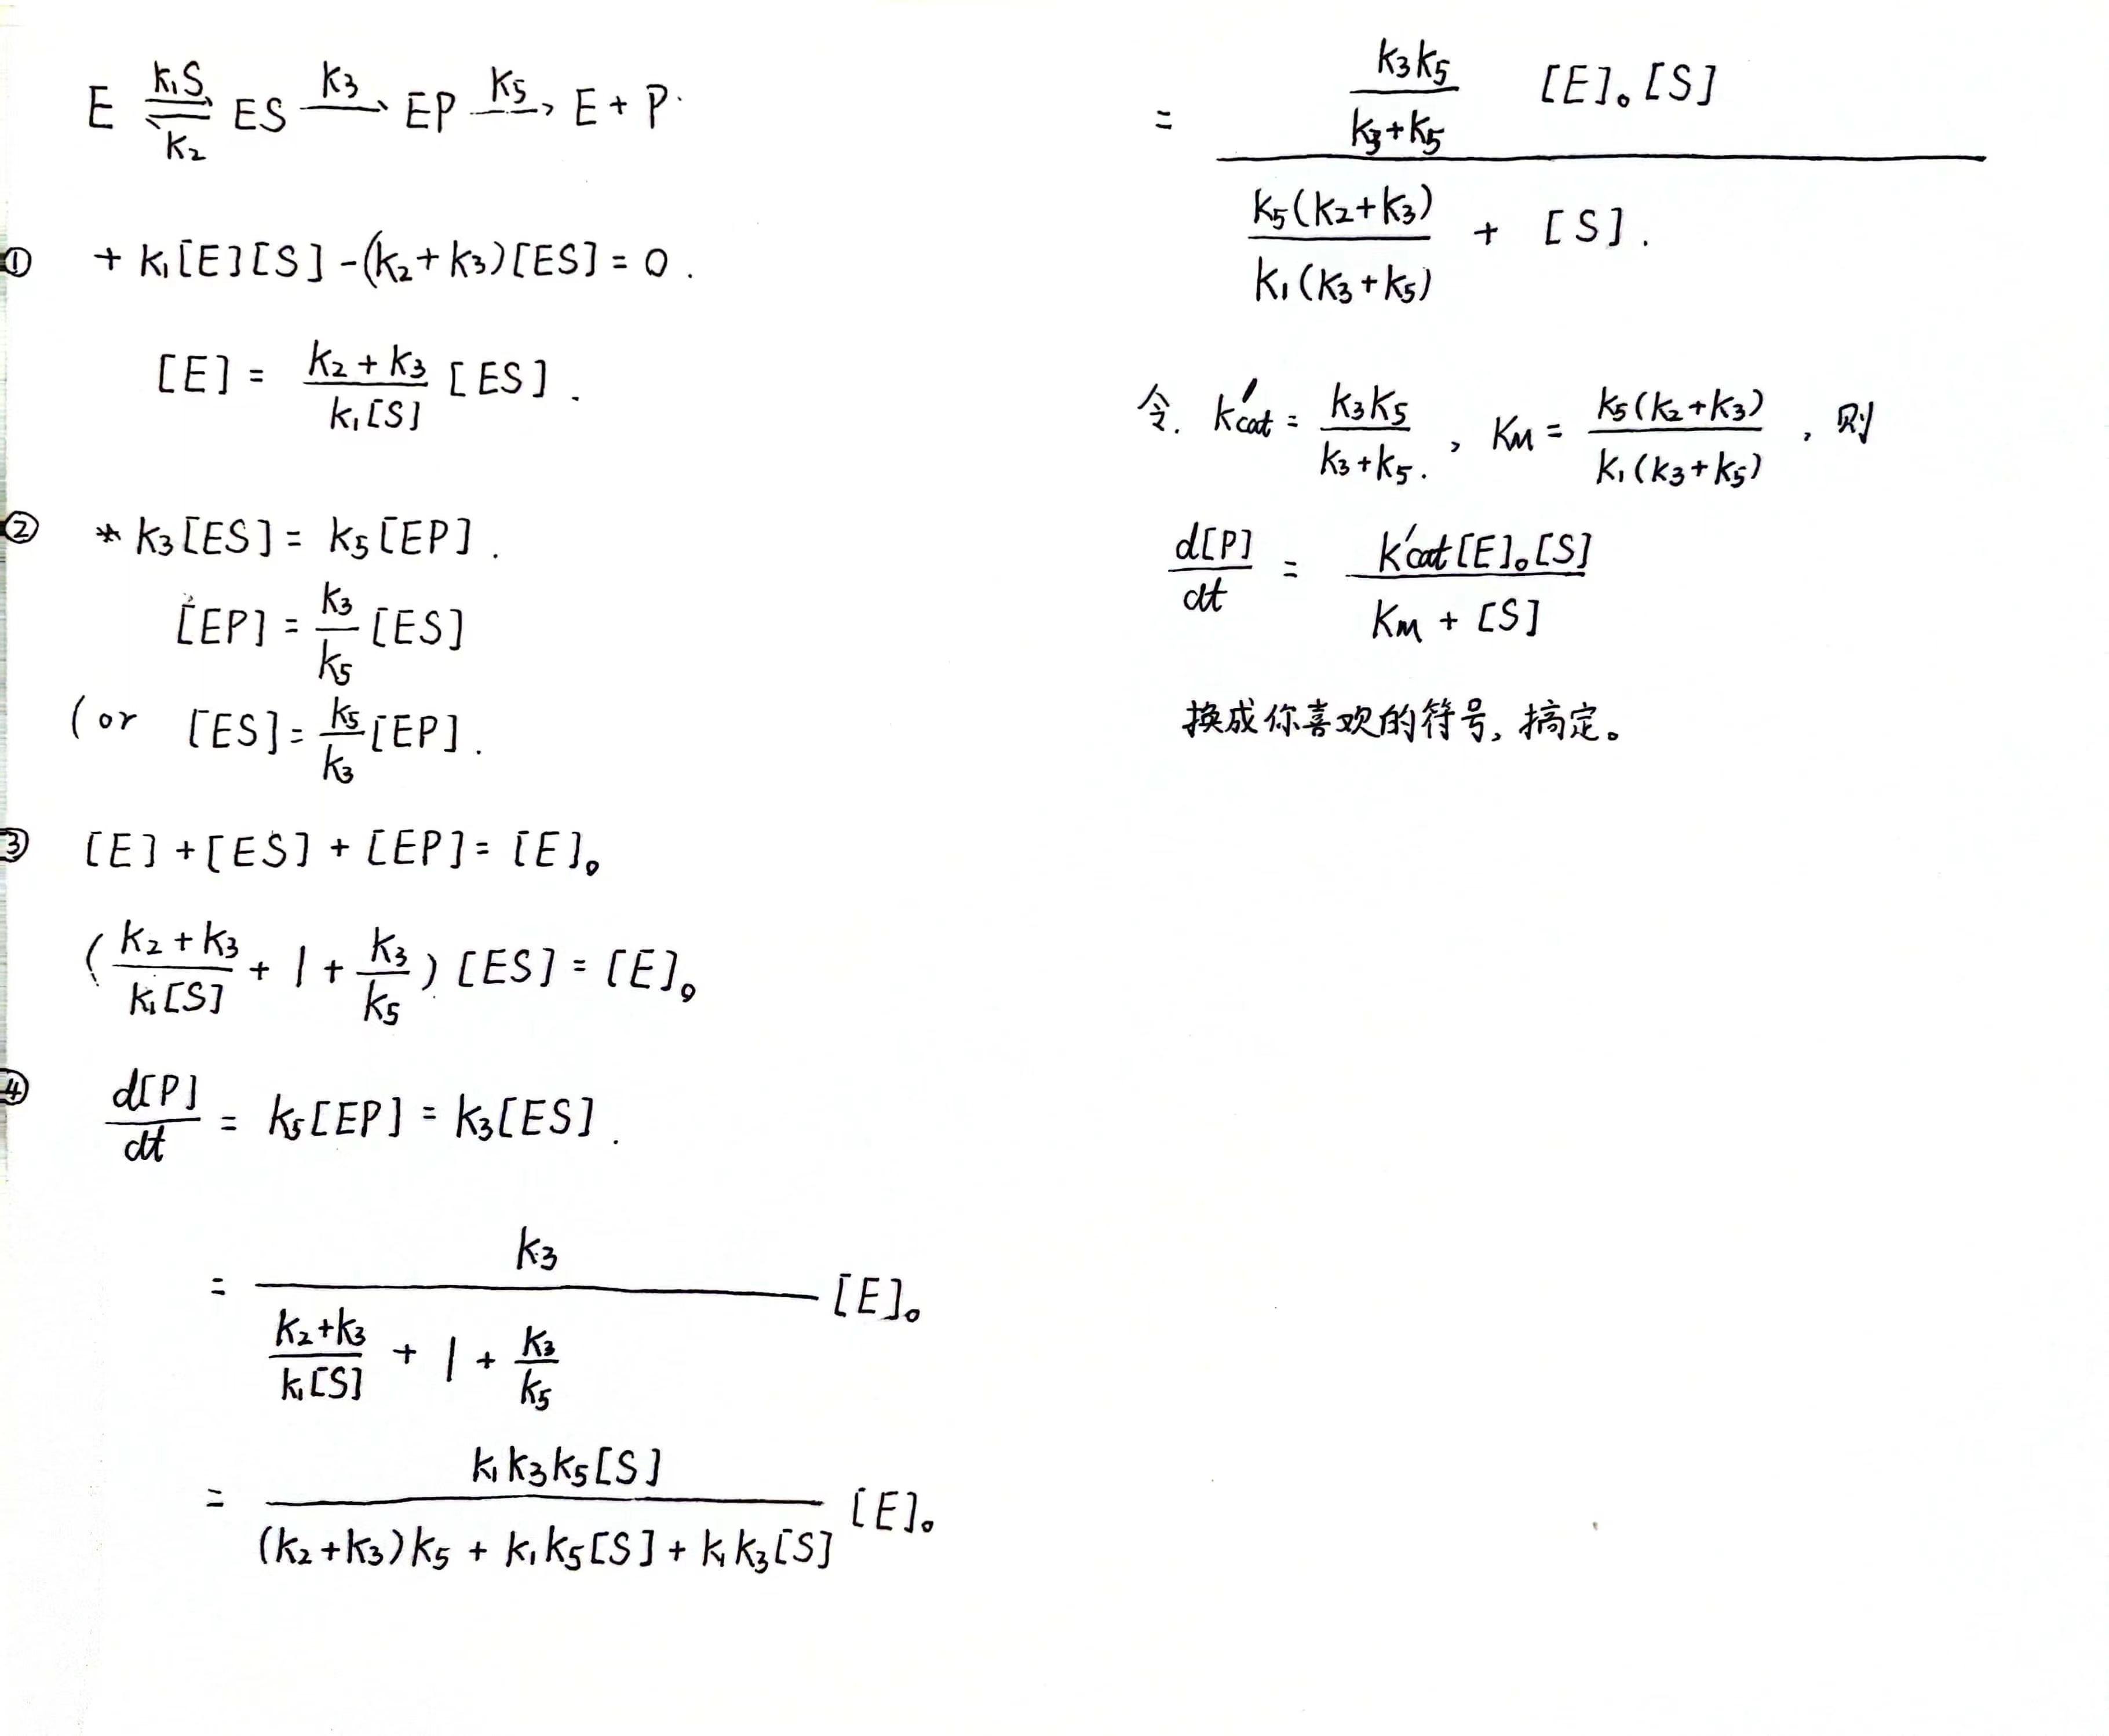 E ⇌ ES → EP → E + P.
k₁S k₃ k₅
k₂
① + k₁[E][S] - (k₂+k₃)[ES] = 0.
[E] = (k₂+k₃)/(k₁[S]) [ES].
② * k₃[ES] = k₅[EP].
[EP] = k₃/k₅ [ES]
(or [ES] = k₅/k₃ [EP].
③ [E]+[ES]+[EP] = [E]₀
((k₂+k₃)/(k₁[S]) + 1 + k₃/k₅) [ES] = [E]₀
④ d[P]/dt = k₅[EP] = k₃[ES].
= k₃/((k₂+k₃)/(k₁[S]) + 1 + k₃/k₅) [E]₀
= k₁k₃k₅[S]/((k₂+k₃)k₅ + k₁k₅[S] + k₁k₃[S]) [E]₀
= (k₃k₅/(k₃+k₅) [E]₀[S])/(k₅(k₂+k₃)/(k₁(k₃+k₅)) + [S]).
令. k'cat = k₃k₅/(k₃+k₅). , KM = k₅(k₂+k₃)/(k₁(k₃+k₅)) , 则
d[P]/dt = k'cat[E]₀[S]/(KM + [S])
换成你喜欢的符号, 搞定。